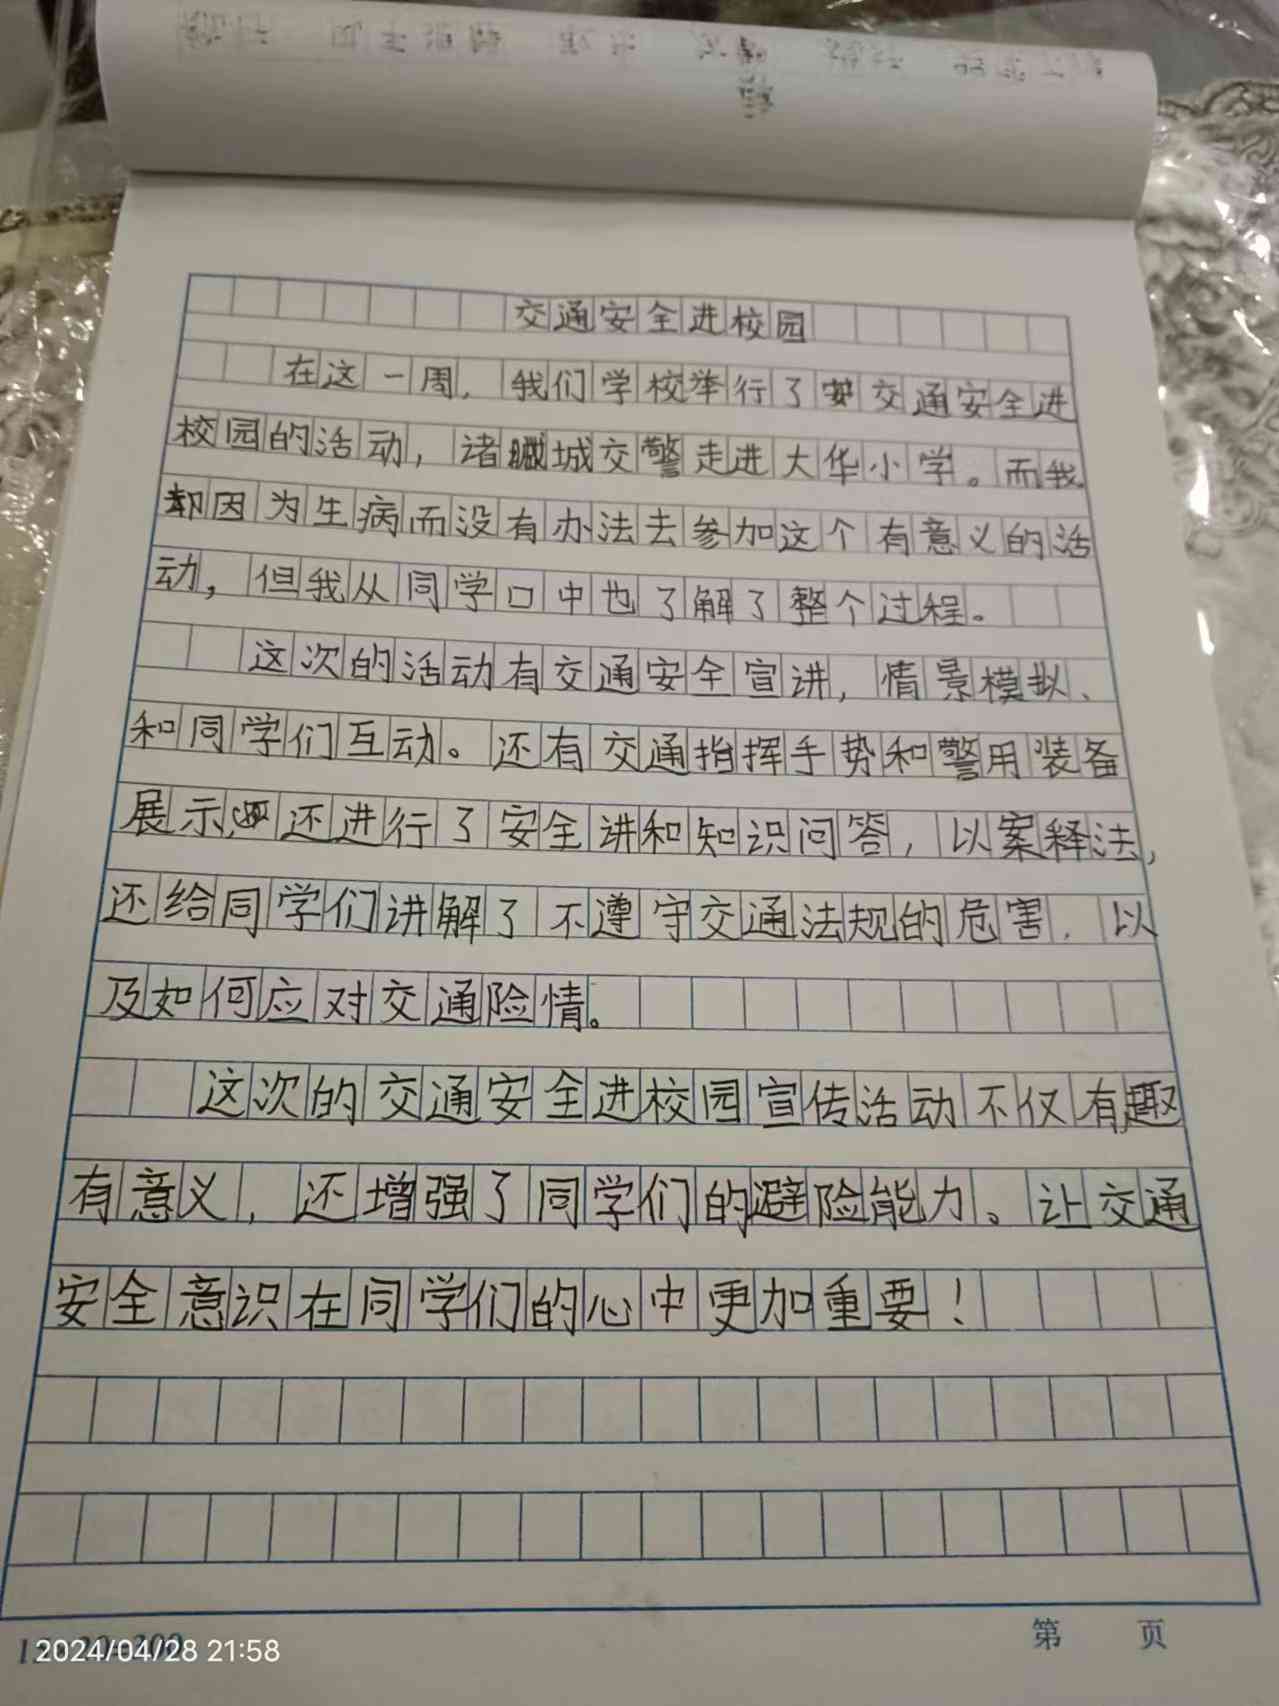 交通安全进校园
在这一周，我们学校举行了交通安全进
校园的活动，诸城交警走进大华小学。而我
却因为生病而没有办法去参加这个有意义的活
动，但我从同学口中也了解了整个过程。
这次的活动有交通安全宣讲，情景模拟、
和同学们互动。还有交通指挥手势和警用装备
展示，还进行了安全讲和知识问答，以案释法，
还给同学们讲解了不遵守交通法规的危害，以
及如何应对交通险情。
这次的交通安全进校园宣传活动不仅有趣
有意义，还增强了同学们的避险能力。让交通
安全意识在同学们的心中更加重要！
第 页
2024/04/28 21:58